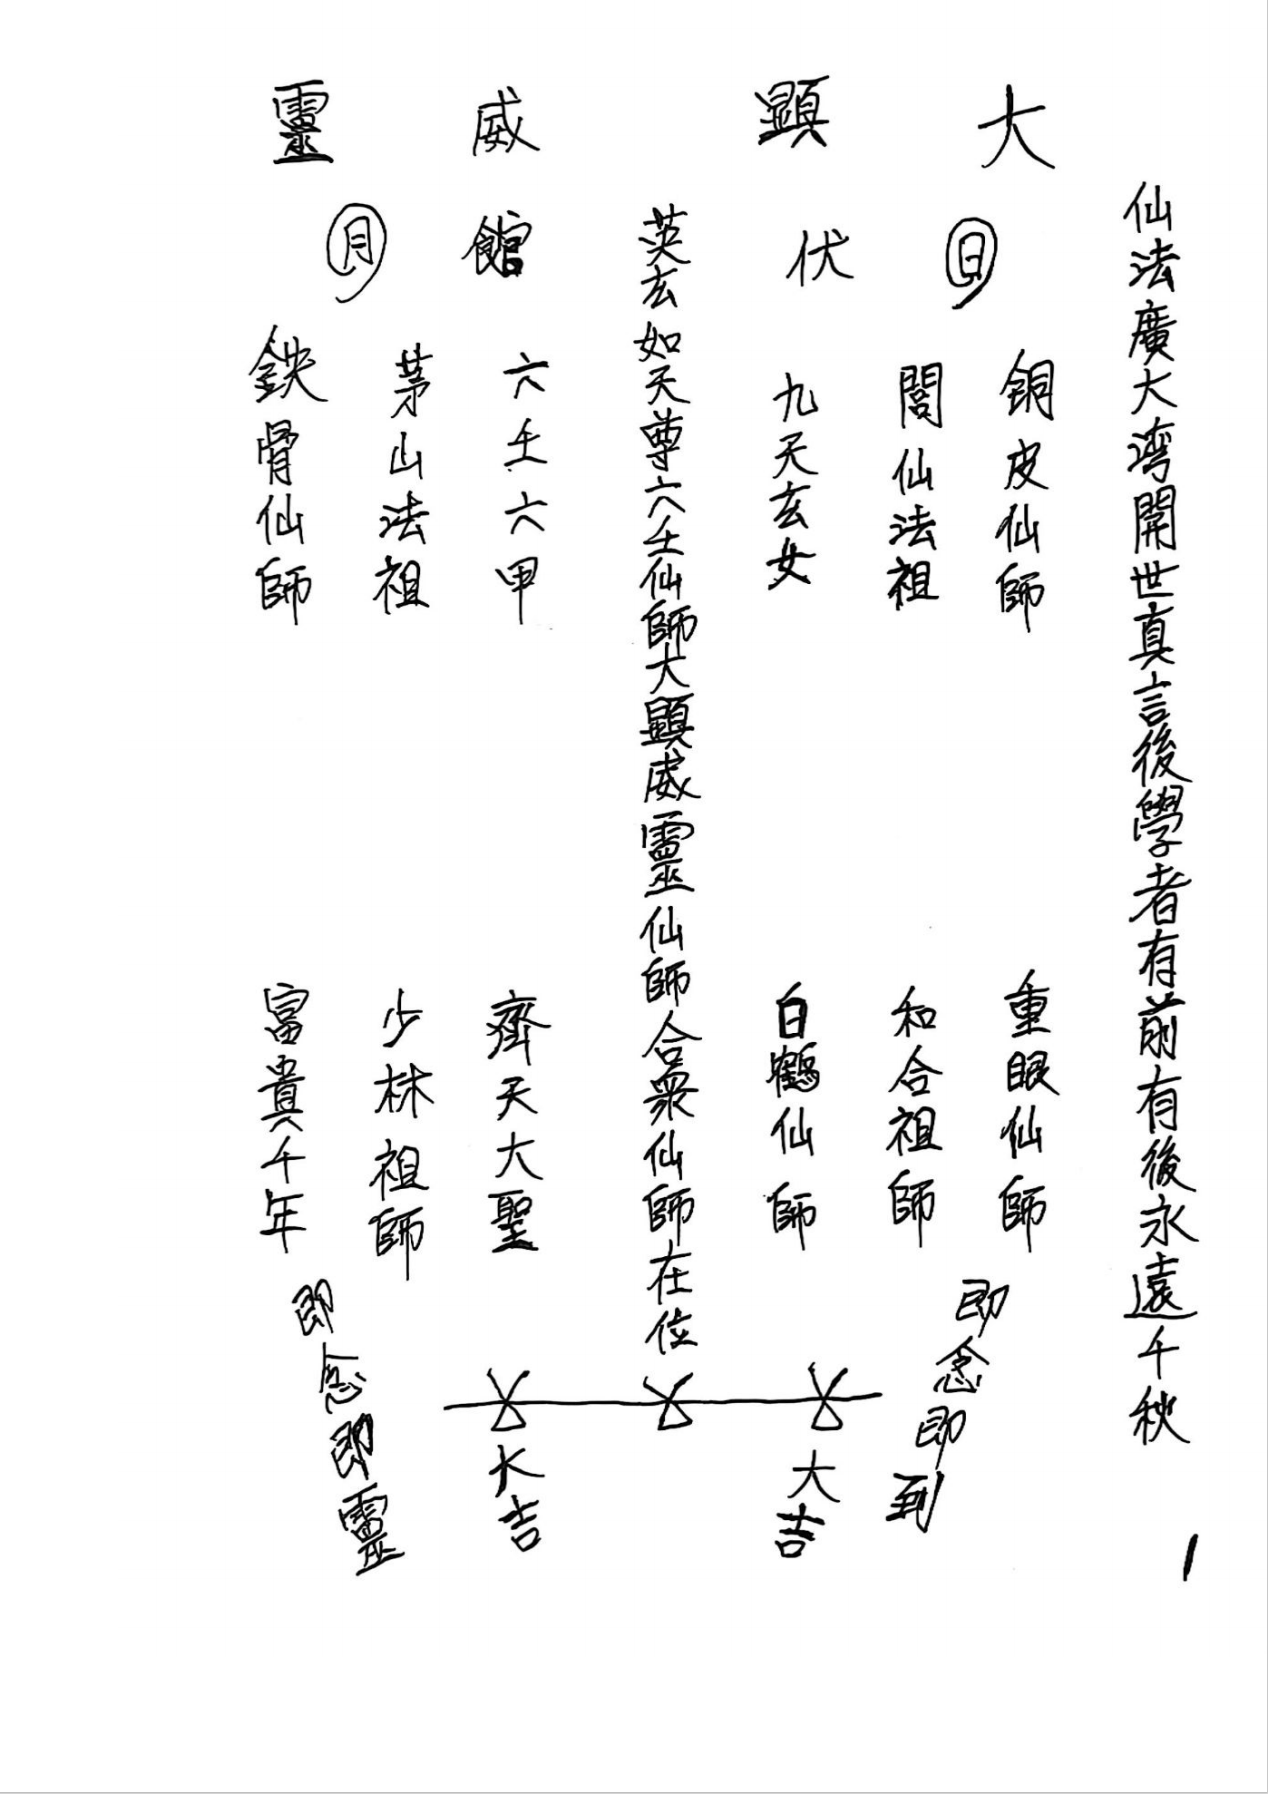 仙法廣大湾開世真言後學者有前有後永遠千秋
大顕威靈
日
伏
館
月
銅皮仙師
閭仙法祖
九天玄女
英玄如天尊六壬仙師大顕威靈仙師合衆仙師在位
六壬六甲
茅山法祖
鉄骨仙師
重眼仙師
和合祖師
白鶴仙師
齊天大聖
少林祖師
富貴千年
即念即到
大吉
大吉
即念即靈
1